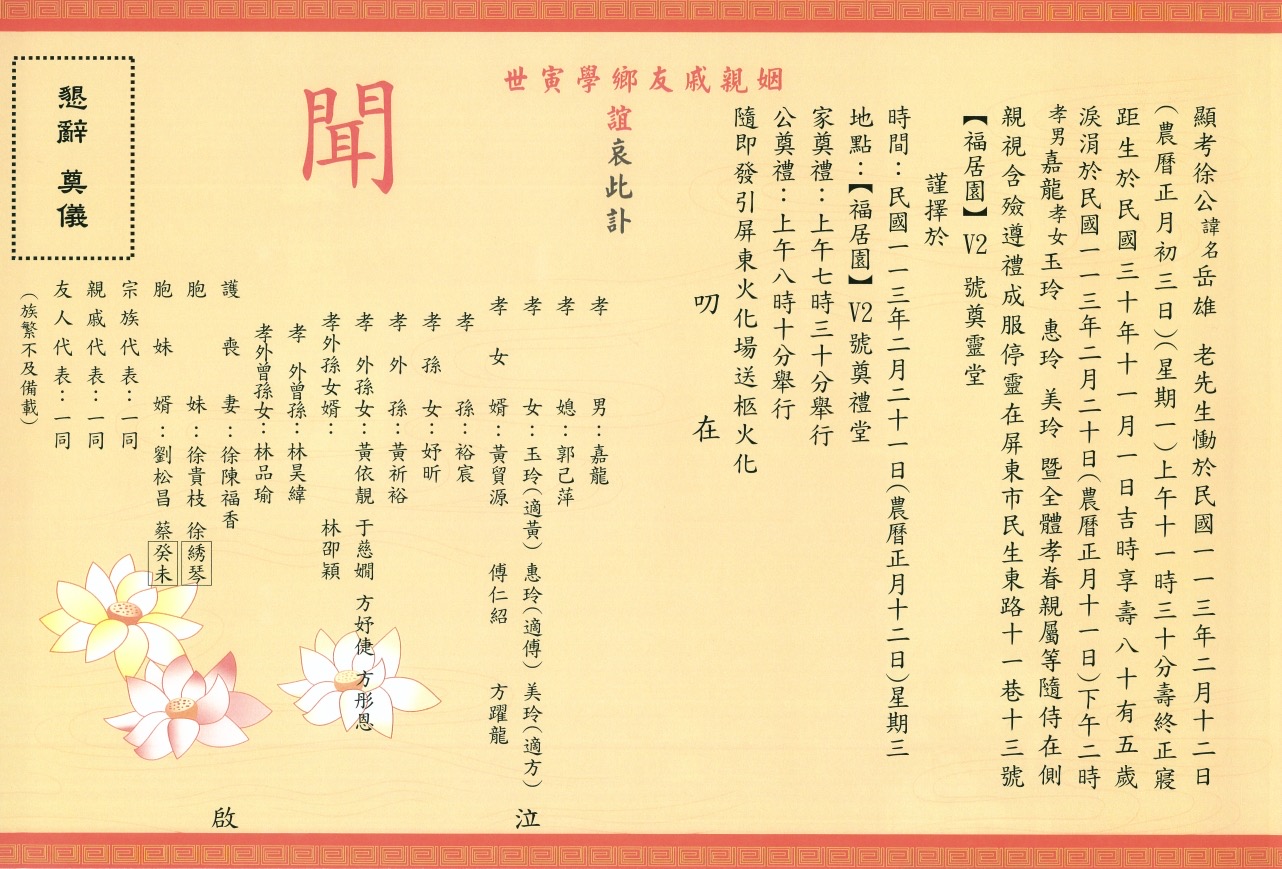 顯考徐公諱名岳雄　老先生慟於民國一一三年二月十二日
(農曆正月初三日)(星期一)上午十一時三十分壽終正寢
距生於民國三十年十一月一日吉時享壽八十有五歲
淚涓於民國一一三年二月二十日(農曆正月十一日)下午二時
孝男嘉龍孝女玉玲　惠玲　美玲　暨全體孝眷親屬等隨侍在側
親視含殮遵禮成服停靈在屏東市民生東路十一巷十三號
【福居園】V2 號奠靈堂
謹擇於
時間：民國一一三年二月二十一日(農曆正月十二日)星期三
地點：【福居園】V2號奠禮堂
家奠禮：上午七時三十分舉行
公奠禮：上午八時十分舉行
隨即發引屏東火化場送柩火化
叨　在
姻親戚友鄉學寅世
誼哀此訃
聞
孝男：嘉龍
孝媳：郭己萍
孝女：玉玲(適黃)　惠玲(適傅)　美玲(適方)
孝女婿：黃貿源　傅仁紹　方躍龍
孝孫：裕宸
孝孫女：妤昕
孝外孫：黃祈裕
孝外孫女：黃依靚　于慈嫺　方妤倢　方彤恩
孝外孫女婿：　林卲穎
孝外曾孫：林昊緯
孝外曾孫女：林品瑜
護喪妻：徐陳福香
胞妹：徐貴枝　徐綉琴
胞妹婿：劉松昌　蔡癸未
宗族代表：一同
親戚代表：一同
友人代表：一同
(族繁不及備載)
泣
啟
懇辭　奠儀